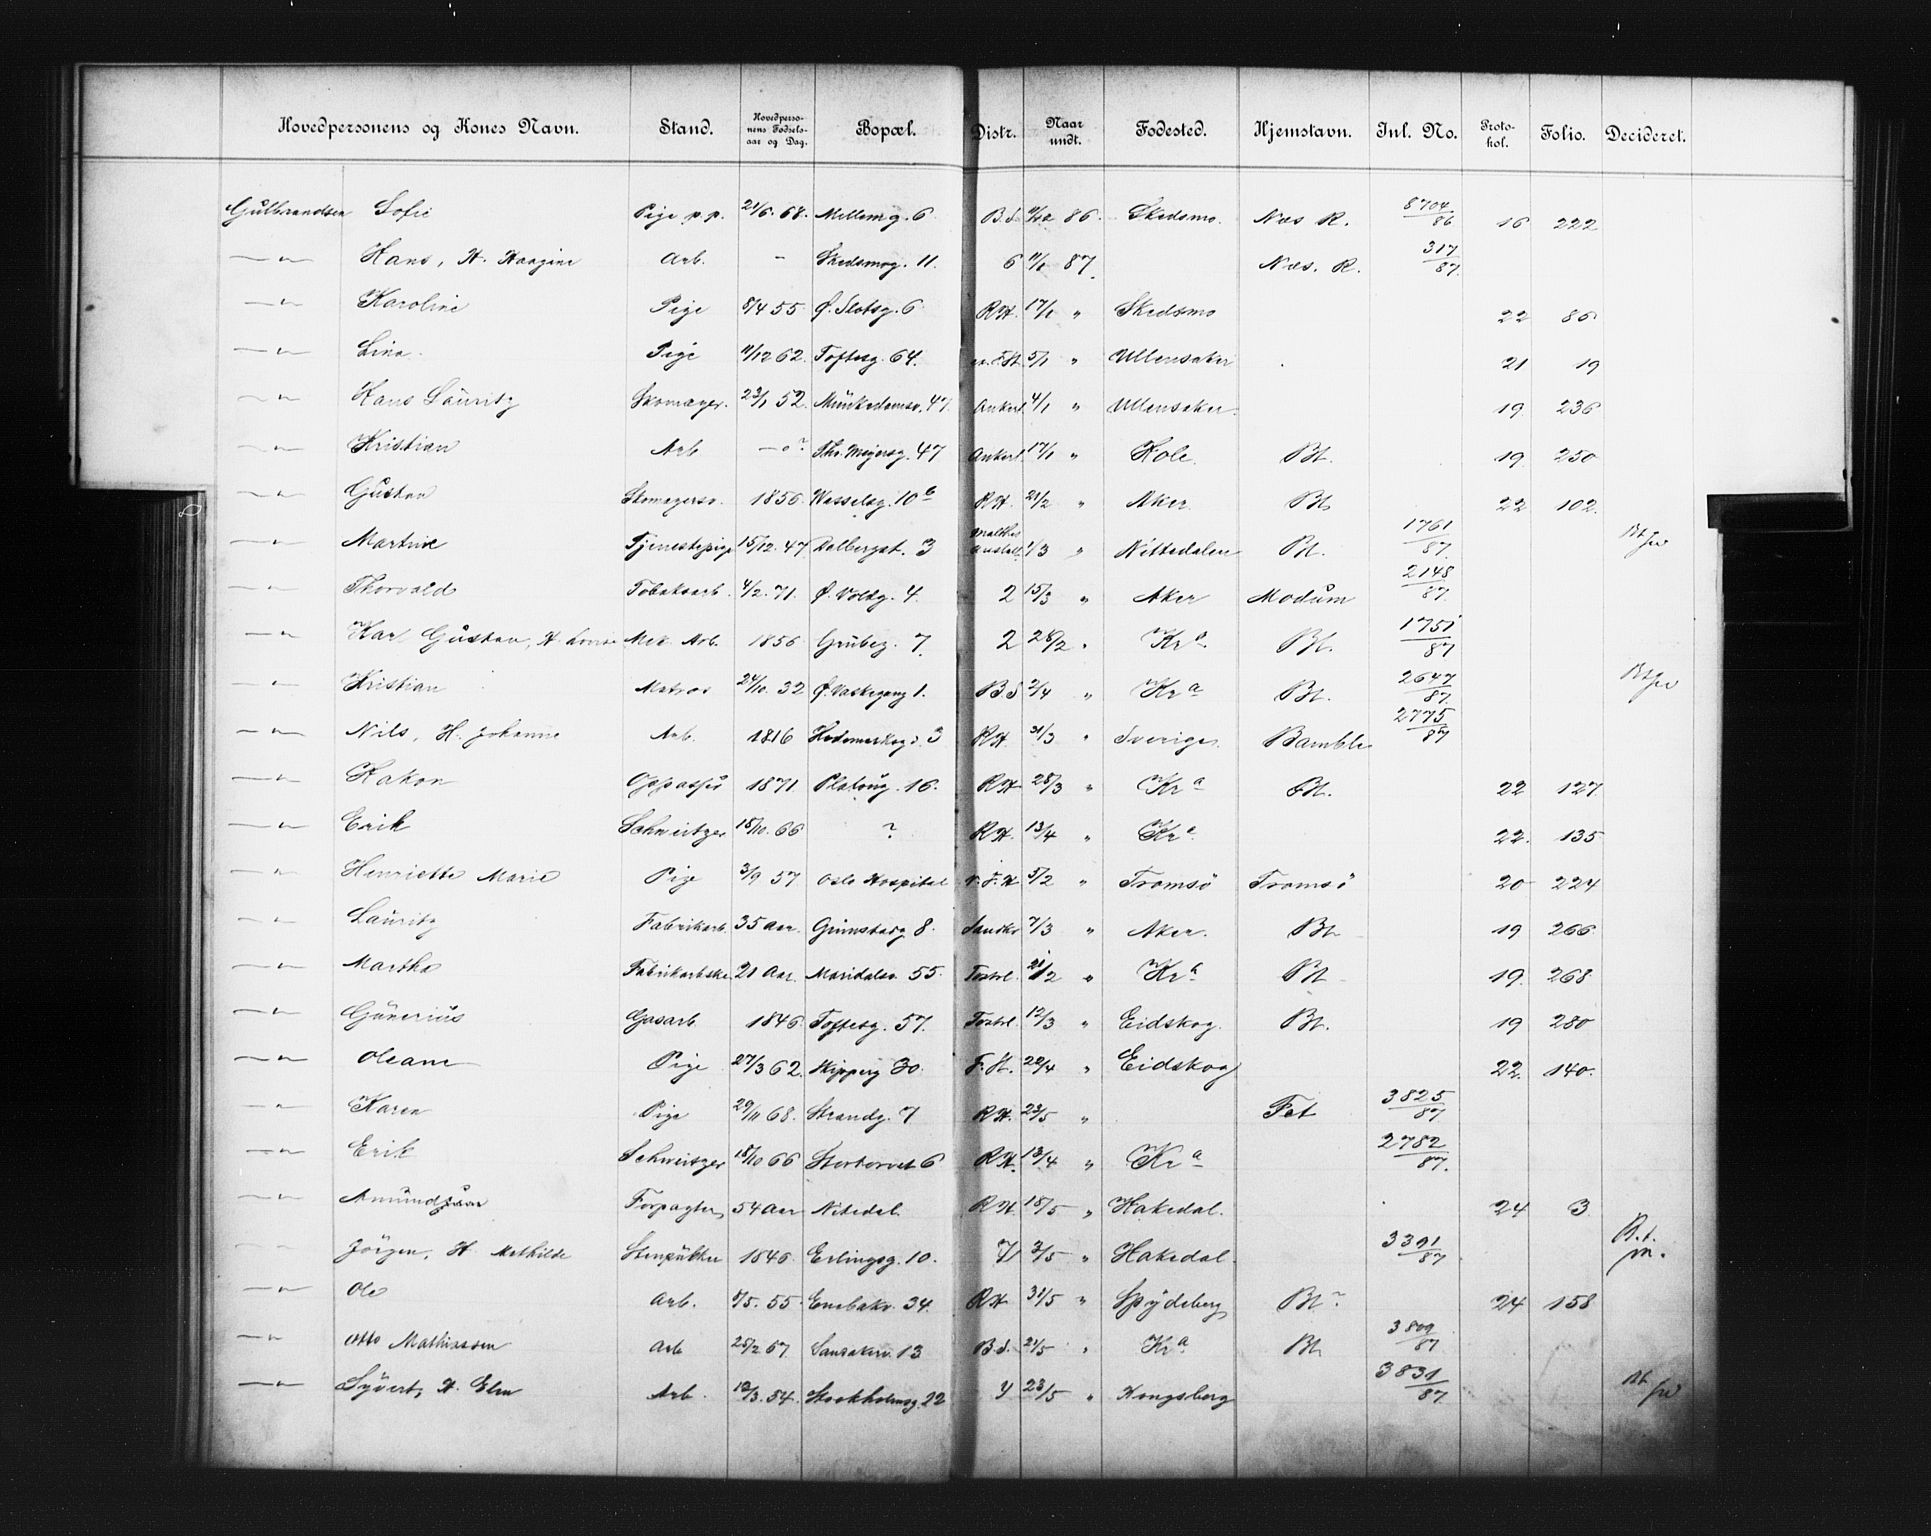 Hovedpersonens og Kones Navn. Stand. Hovedpersonens Fødselsaar og Dag. Bopæl. Distr. Naar undt. Fødested. Hjemstavn. Inl. No. Protokol. Folio. Decideret.
Gulbrandsen Sofie Pige p.p. 21/6. 68. Mellemg. 6 B.S. 86. Skedsmo. Næs R. 8704/86 16 222
—"— Hans, H. Arb. - Skedsmog. 11. 6 11/1 87. Næs. R. 317/87.
—"— Karoline Pige 8/4 55 Ø. Slotsg. 6 RH. 17/1 " Skedsmo 22 86
—"— Lina Pige 11/12 62. Toftesg. 64. 5/1 " Ullensaker 21 19
—"— Hans Lauritz Skomager. 23/1 52. Munkedamsv. 47. Ankerl. 4/1 " Ullensaker. 19 236
—"— Kristian Arb —o? Th. Meyersg. 47 Ankerl. 17/1 " Hole. Bt. 19. 250
—"— Gustav Skomagersv. 1856. Wesselsg. 10 b RH. 21/2 " Aker Bt. 22 102.
—"— Martine Tjenestepige 15/12. 47. Dalbergst. 3 1/3 " Nittedalen Bt. 1761/87.
—"— Thorvald Tobaksarb. 4/2. 71. Ø. Voldg. 4. 2 15/3 " Aker Modum 2148/87.
—"— Karl Gustav, H. Lovise Mek. Arb. 1856 Grubeg. 7. 2 28/2 " Kra. Bt. 1751/87
—"— Kristian Matros 24/10. 32 Ø. Vaskegang 1. BS 2/4 " Kra Bt. 2647/87.
—"— Nils, H. Johanne Arb. 1816 Hedemarksg. 3 RH. 31/3 " Sverige. Bamble 2775/87
—"— Hakon 1871. Platoug. 16. RH 28/3 " Kra Bt. 22 127
—"— Erik Schweitzer 18/10. 66 ? RH. 13/4 " Kra 22. 135
—"— Henriette Marie Pige 3/9 57 Oslo Hospital 5/2 " Tromsö Tromsö 20 224
—"— Lauritz Fabrikarb. 35 Aar. Grimstadg 8. Sandkr 7/3 " Aker. Bt. 19 266
—"— Martha Fabrikarbske 21 Aar. Maridalsv. 55. 21/2 " Kra Bt 19. 268
—"— Gunerius Gasarb. 1846. Toftesg. 57. 12/3 " Eidskog. Bt. 19 280
—"— Oleane Pige 27/3 62. Skipperg 30. F.H. 22/4 " Eidskog 22. 140.
—"— Karen Pige 29/11 68. Strandg. 7 RH. 23/5 " Fet 3825/87
—"— Erik Schweitzer 18/10 66 Stortorvet 6 RH. 13/4 " Kra 2782/87.
—"— Amund Forpagter, 54 Aar Nitedal. RH. 18/5 " Hakedal. 24 3
—"— Jörgen, H. Mathilde Stenpukker 1846. Erlingsg. 10. 7 3/5 " Hakedal. 3391/87
—"— Ole Arb. 55. Enebakv. 34. RH 31/5 " Spydeberg Bt? 24 158
—"— Otto Mathiassen Arb 25/2 67. 13 B.S. 21/5 " Kra Bt. 3809/87
—"— Syvert, H. Elen Arb. 12/3. 54. Stockholmsg. 22 23/5 " Kongsberg 3831/87